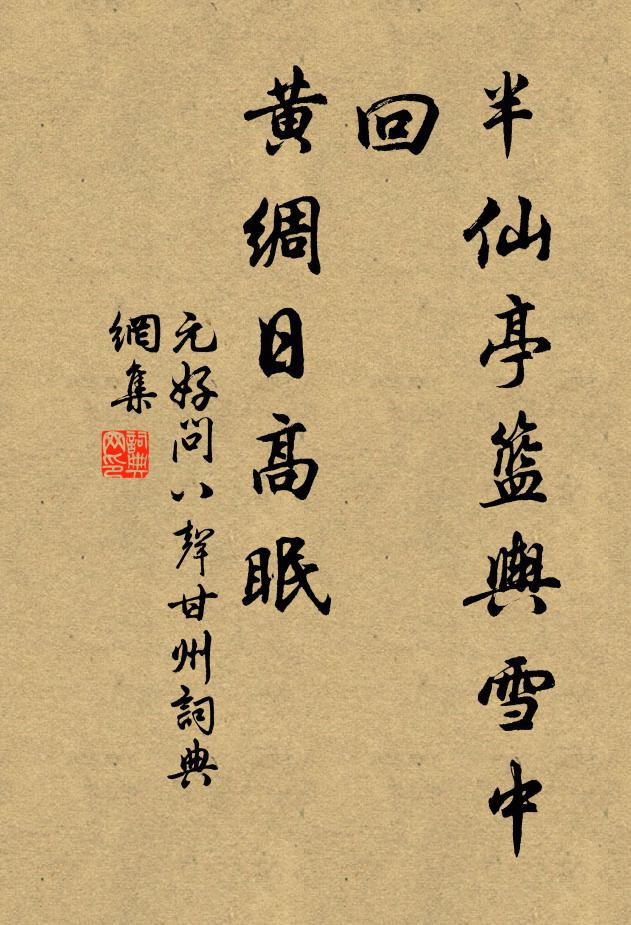 半仙亭籃輿雪中
回
黄綢日高眠
元好問八聲甘州詞典
網集
詞典
网印